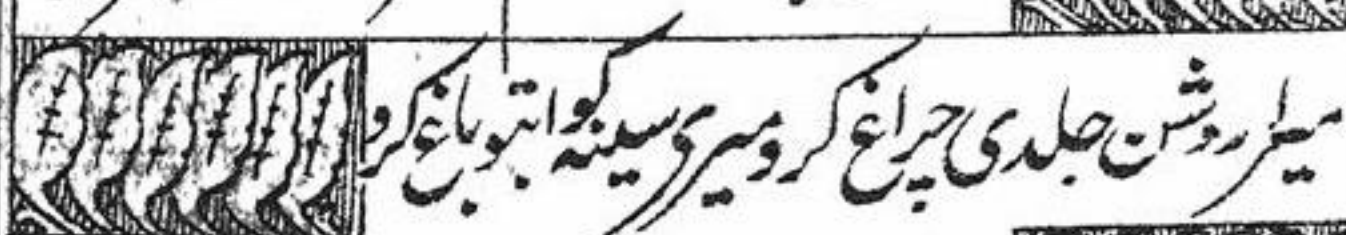 میرا روشن جلدی چراغ کرو میری سینہ کو ابتو باغ کرو